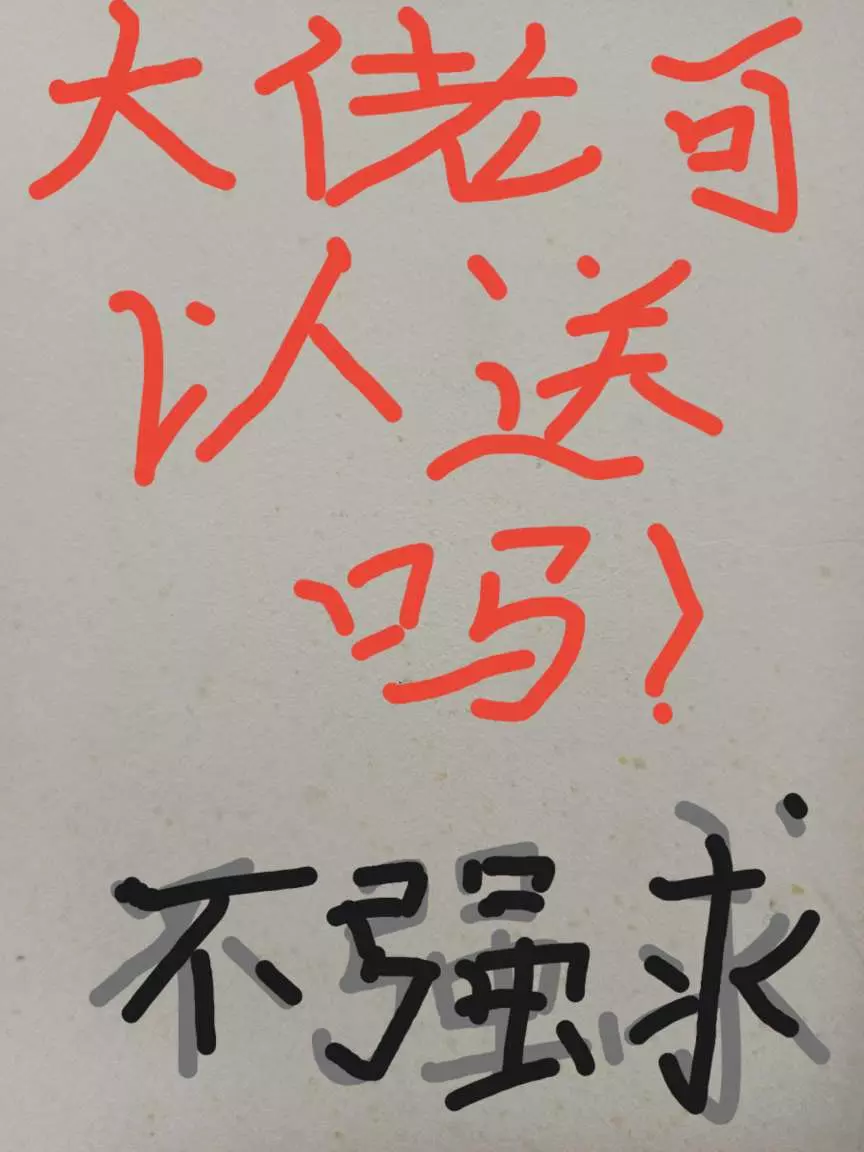 大佬可
以送
吗?
不强求